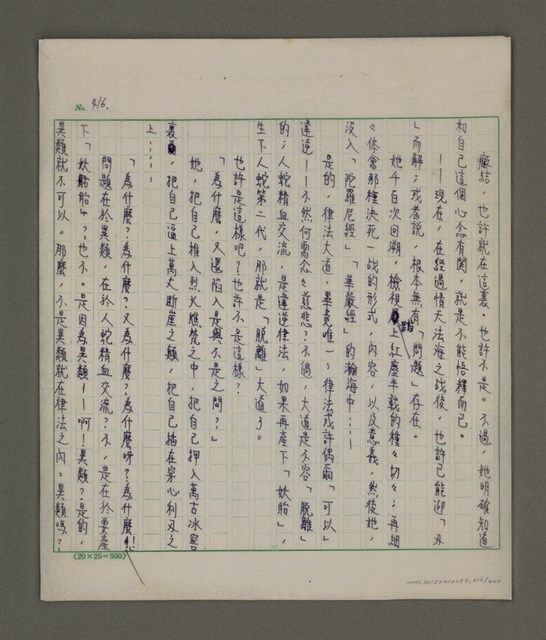 No. 416.
癥結，也許就在這裏。也許不是。不過，她明確知道
和自己這個心念有關，就是不能悟釋而已。
——現在，在經過情天法海之战後，也許已能迎「刃
」而解；或者説，根本無有「問題」存在。
她千百次回溯，檢視踏上紅塵半載的種々切々；再細
々体會那種決死一战的形式，內容，以及意義，然後她，
沒入「陀羅尼經」「華嚴經」的瀚海中……
是的，律法大道，畢竟唯一；律法或許偶爾「可以」
違逆——不然何需念々慈悲？不過，大道是不容「脱離」
的；人蛇精血交流，是違逆律法，如果再產下「妖胎」，
生下人蛇第二代，那就是「脱離」大道了。
也許是這樣吧？也許不是這樣？
「為什麼，又還陷入是與不是之間？」
她，把自己推入烈火燋梵之中，把自己押入萬古冰窖
裏，把自己逼上萬丈断崖之巅，把自己插在穿心利刃之
上……
「為什麼？為什麼？又為什麼？為什麼呀？為什麼！！
問題在於異類，在於人蛇精血交流？不，是在於要產
下「妖胎」？也不。是因為異類——啊！異類？是的，
異類就不可以。那麼，不是異類就在律法之內。異類嗎？
(20×25=500)